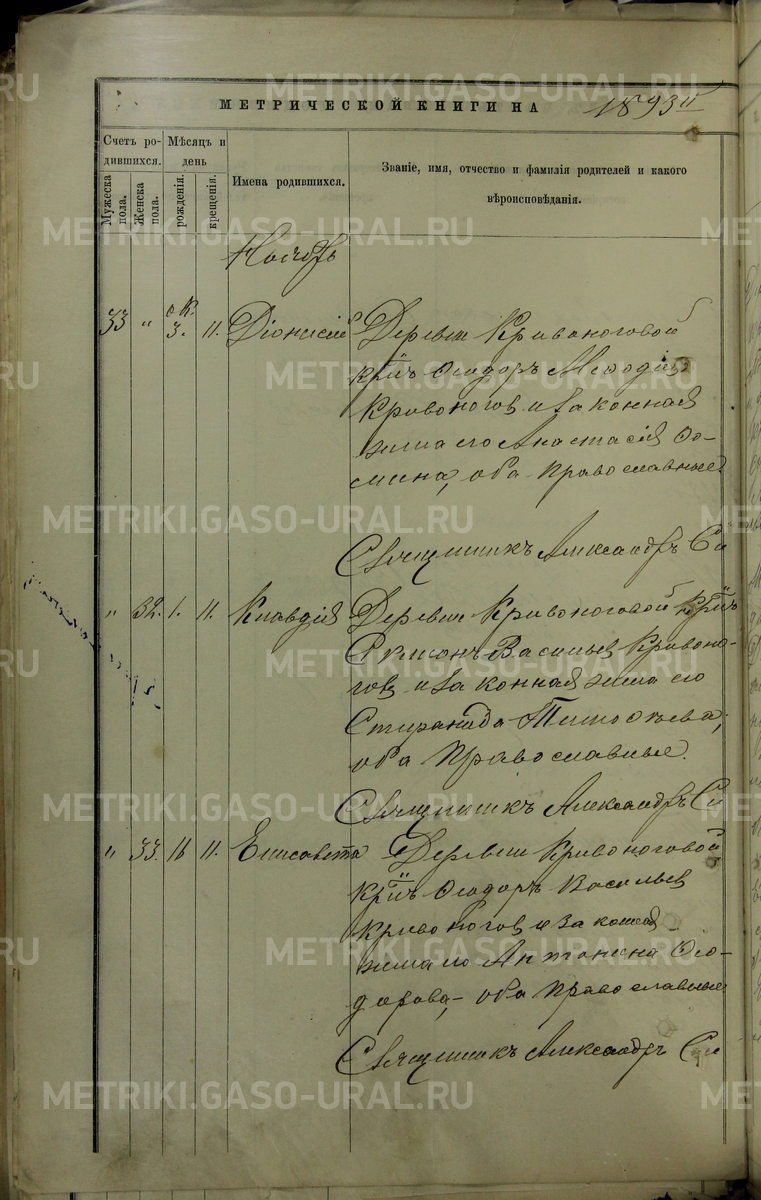 МЕТРИЧЕСКОЙ КНИГИ НА 1893
Счетъ ро-
дившихся.
Мѣсяцъ и
день
Мужеска
пола.
Женска
пола.
рожденія.
крещенія.
Имена родившихся.
Званіе, имя, отчество и фамилія родителей и какого
вѣроисповѣданія.
Ноябрь
33 " 3. 11. Діонисій Деревни Кривоноговой
Ѳеодоръ Меѳодіевъ
Кривоноговъ и законная
жена его Анастасія Ѳо-
мина, оба православные
Священникъ Александръ Си
" 32. 1. 11. Клавдія Деревни Кривоноговой
Васильевъ Кривоно-
говъ и законная жена его
Тимоѳеева,
оба Православные.
Священникъ Александръ Си
" 33. 11. Елисавета Деревни Кривоноговой
Ѳеодоръ Васильевъ
Кривоноговъ и законная
жена его Антонина Ѳео-
дорова, оба православные
Священникъ Александръ Си
METRIKI.GASO-URAL.RU